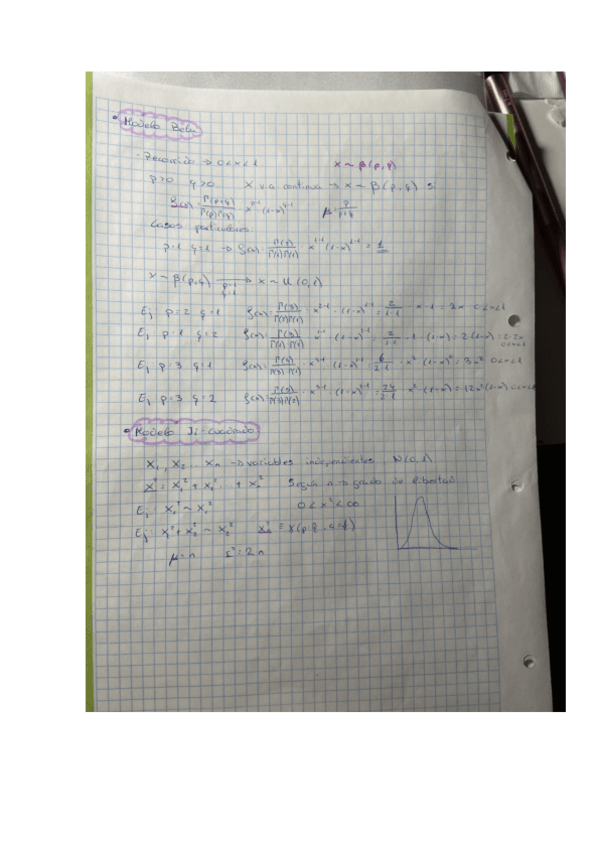 • Modelo Beta
· Recorrido → 0<x<1 X ~ β(p,q)
p>0 q>0 X v.a continua → X ~ β(p,q) si
f(x)= Γ(p+q)/Γ(p)Γ(q) · x^p-1 (1-x)^q-1 μ= p/p+q
Casos particulares
p=1 q=1 → f(x)= Γ(2)/Γ(1)Γ(1) · x^1-1 (1-x)^1-1 = 1
X ~ β(p,q) → p=1 q=1 X ~ U(0,1)
Ej p=2 q=1 f(x)= Γ(3)/Γ(2)Γ(1) · x^2-1 · (1-x)^1-1 = 2/1·1 · x·1 = 2x 0<x<1
Ej p=1 q=2 f(x)= Γ(3)/Γ(1)Γ(2) · x^1-1 · (1-x)^2-1 = 2/1·1 · 1·(1-x) = 2(1-x) = 2-2x 0<x<1
Ej p=3 q=1 f(x)= Γ(4)/Γ(3)Γ(1) · x^3-1 · (1-x)^1-1 = 6/2·1 · x² (1-x)^0 = 3x² 0<x<1
Ej p=3 q=2 f(x)= Γ(5)/Γ(3)Γ(2) · x^3-1 · (1-x)^2-1 = 24/2·1 · x² (1-x) = 12x²(1-x) 0<x<1
• Modelo Ji-cuadrado
X₁, X₂ Xn → variables independientes N(0,1)
X² = X₁² + X₂² + Xn² Según n → grado de libertad
Ej: X₁² ~ X₁² 0<x²<∞
Ej: X₁² + X₂² ~ X₂²
μ=n = 2n